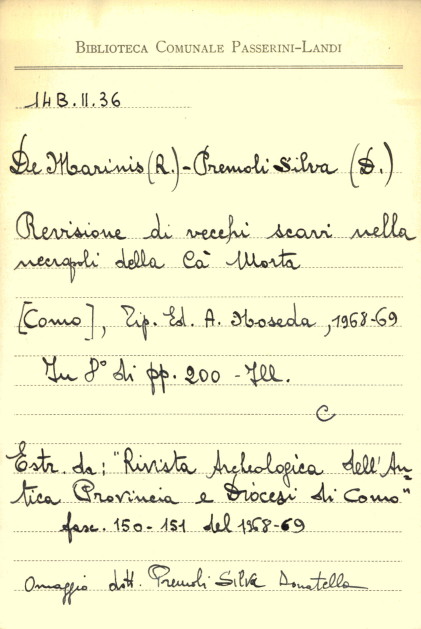 BIBLIOTECA COMUNALE PASSERINI-LANDI
14B.II.36
De Marinis (R.) - Premoli Silva (D.)
Revisione di vecchi scavi nella
necropoli della Cà Morta
[Como], Tip. Ed. A. Noseda, 1968-69
In 8° di pp. 200 - Ill.
C
Estr. da: "Rivista Archeologica dell'An=
tica Provincia e Diocesi di Como"
fasc. 150-151 del 1968-69
Omaggio dott. Premoli Silva Donatella